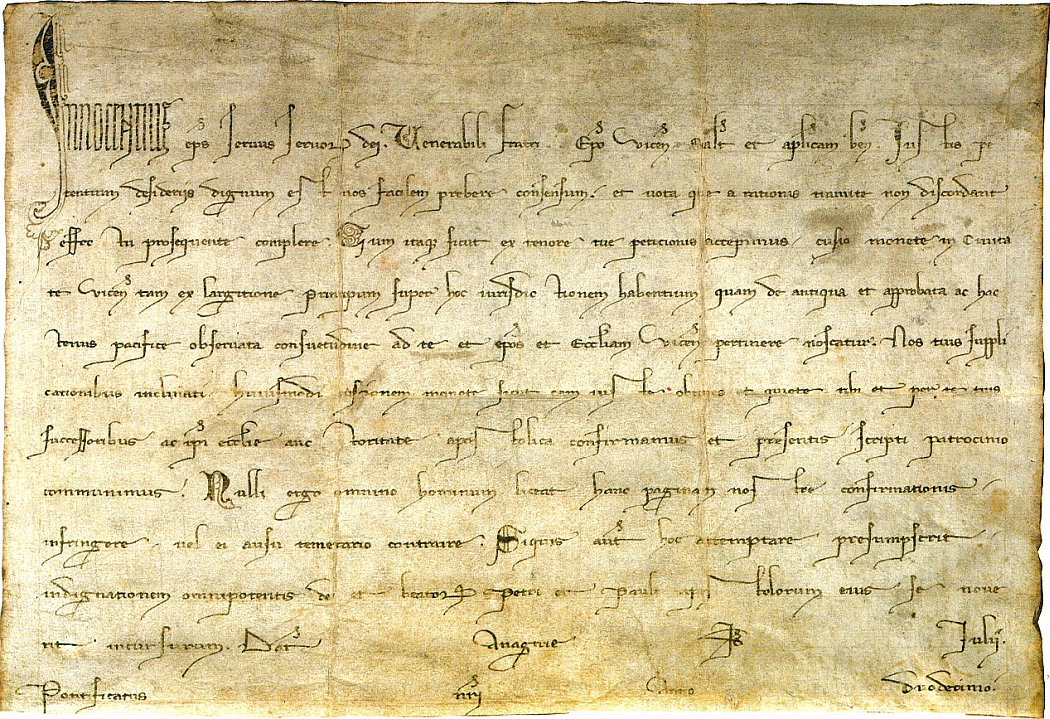 INNOCENTIUS eps servus servor dei. Venerabili fratri . Epo Vicen Salt et aplicam ben. Iustis pe
tentium desideriis dignum est nos facilem prebere consensum. et vota que a rationis tramite non discordant
effectu prosequente complere. Cum itaque sicut ex tenore tue peticionis accepimus cusio monete in Civita
te Vicen tam ex largitione Principum super hoc iurisdictionem habentium quam de antiqua et approbata ac hac
tenus pacifice observata consuetudine ad te et epos et Eccliam Vicen pertinere noscatur. Nos tuis suppli
cationibus inclinati huiusmodi cusionem monete sicut eam iuste obtines et quiete tibi et per te tuis
successoribus ac ipi ecclie auctoritate apostolica confirmamus et presentis scripti patrocinio
communimus. Nulli ergo omnino hominum liceat hanc paginam nostre confirmationis
infringere vel ei ausu temerario contraire. Siquis aut hoc attemptare presumpserit
indignationem omnipotentis dei et beator Petri et Pauli apostolorum eius se nove
rit incursurum. Dat Anagnie Iulii.
Pontificatus nri Anno Duodecimo.